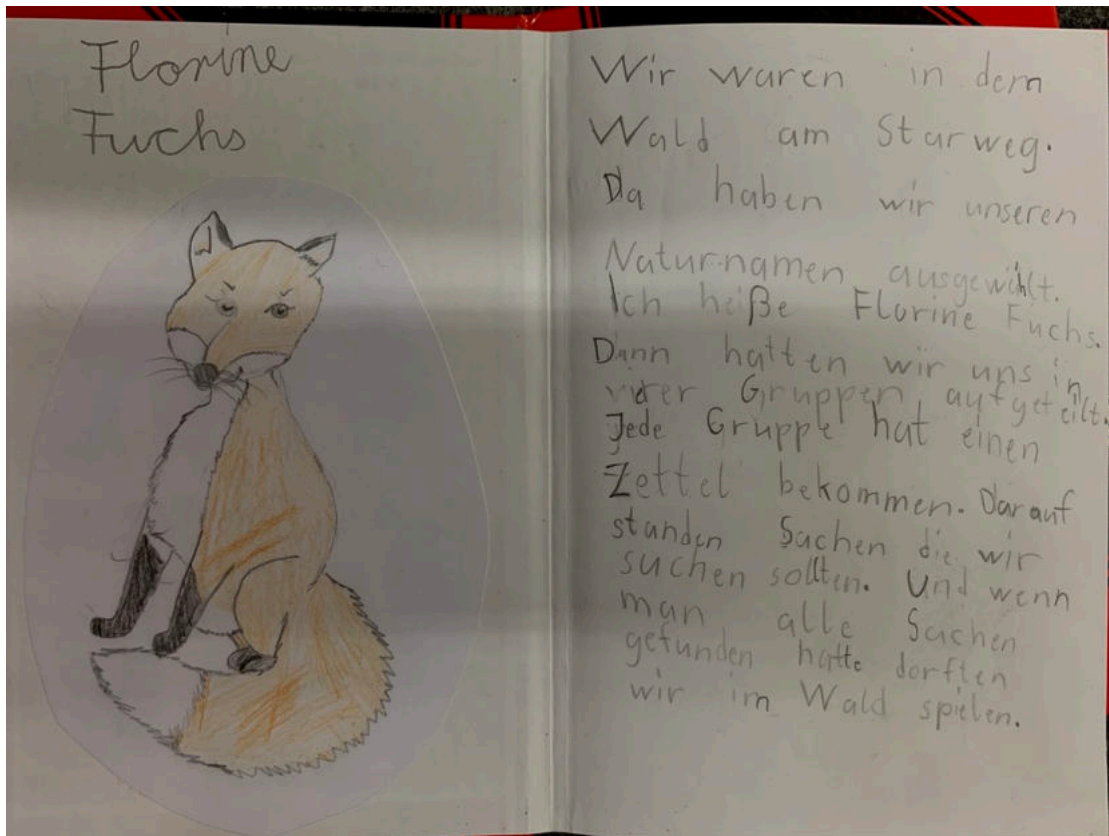 Florine
Fuchs
Wir waren in dem
Wald am Starweg.
Da haben wir unseren
Natur-namen ausgewählt.
Ich heiße Florine Fuchs.
Dann hatten wir uns in
vierer Gruppen aufgeteilt.
Jede Gruppe hat einen
Zettel bekommen. Darauf
standen Sachen die wir
suchen sollten. Und wenn
man alle Sachen
gefunden hatte dorften
wir im Wald spielen.